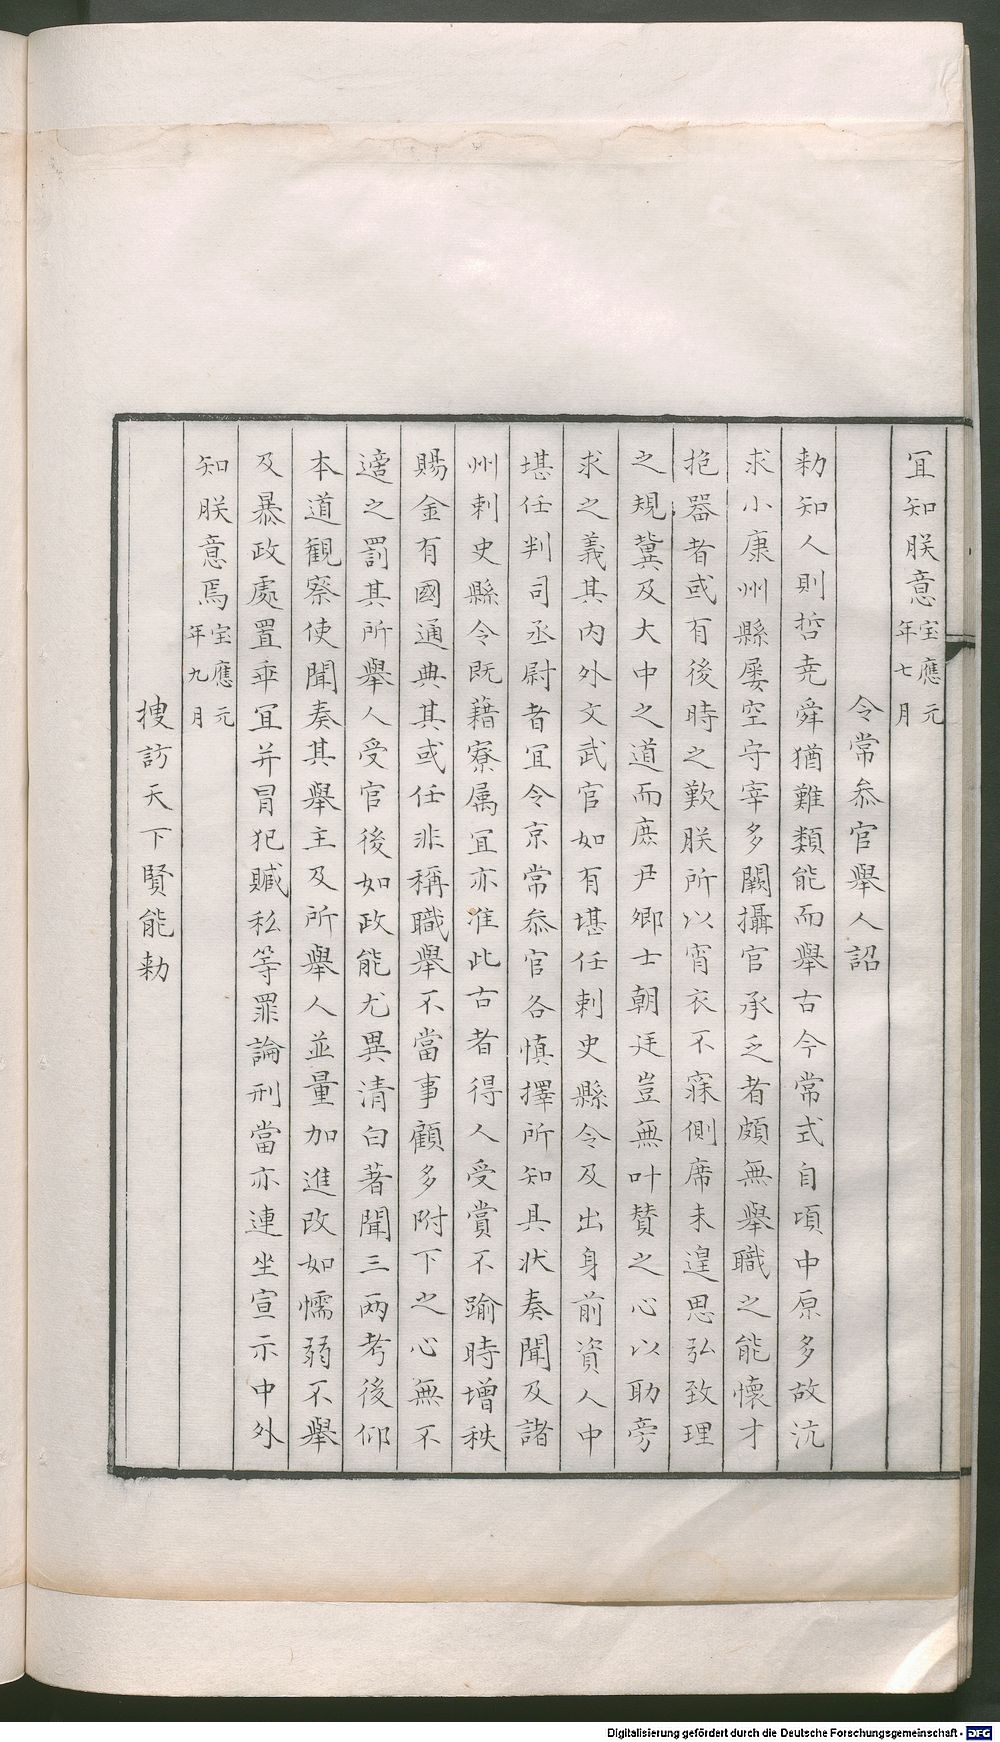 冝知朕意宝應元年七月
令常叅官舉人詔
勑知人則哲尭舜猶難類能而舉古今常式自頃中原多故沆
求小康州縣屡空守宰多闕攝官承乏者頗無舉職之能懐才
抱器者或有後時之歎朕所以宵衣不寐側席未遑思弘致理
之規冀及大中之道而庶尹卿士朝廷豈無叶賛之心以助旁
求之義其内外文武官如有堪任刺史縣令及出身前資人中
堪任判司丞尉者冝令京常叅官各慎擇所知具状奏聞及諸
州刺史縣令既藉寮属冝亦准此古者得人受賞不踰時增秩
賜金有國通典其或任非稱職舉不當事顧多附下之心無不
適之罰其所舉人受官後如政能尤異清白著聞三兩考後仰
本道觀察使聞奏其舉主及所舉人並量加進改如懦弱不舉
及暴政處置乖冝并冒犯贓私等罪論刑當亦連坐宣示中外
知朕意焉宝應元年九月
搜訪天下賢能勑
Digitalisierung gefördert durch die Deutsche Forschungsgemeinschaft - DFG